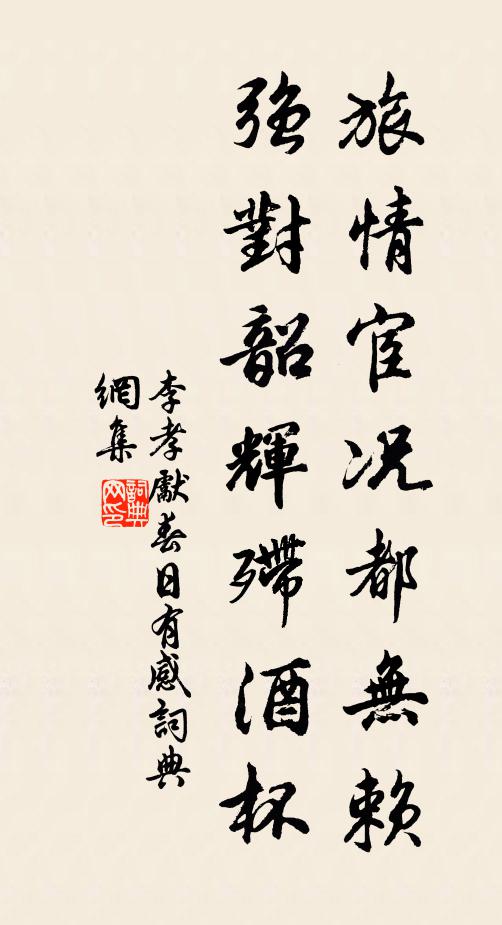 旅情宦况都無賴
強對韶輝殢酒杯
李孝獻春日有感詞典
網集
詞典網印